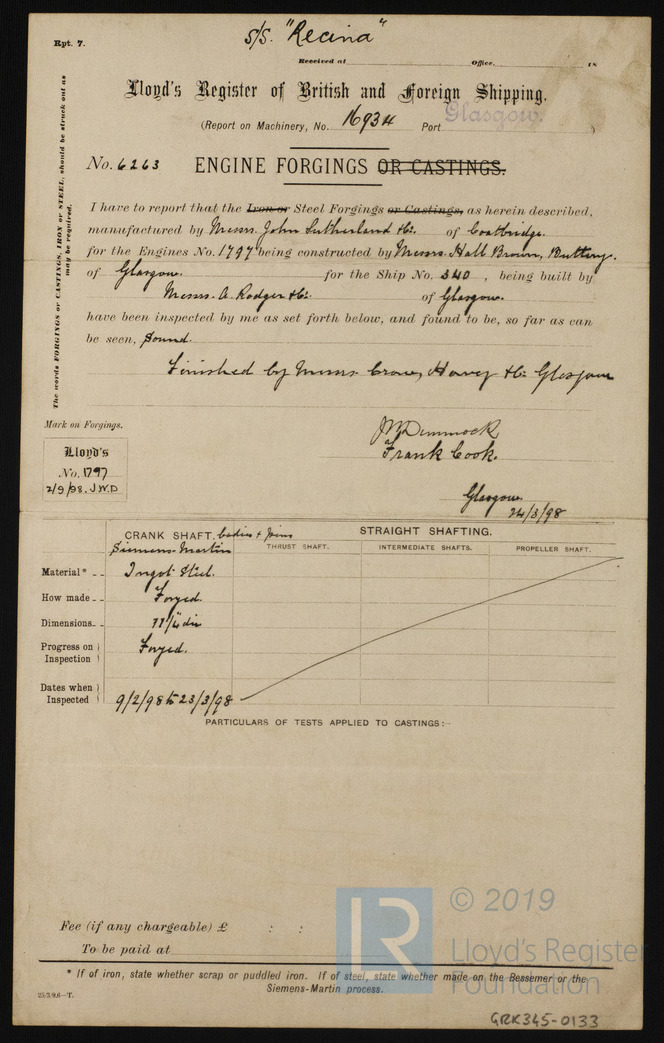 Rpt. 7.
S/S. "Recina"
Received at Office. 18
Lloyd's Register of British and Foreign Shipping.
(Report on Machinery, No. 16934 Port Glasgow.)
No. 6263 ENGINE FORGINGS OR CASTINGS.
The words FORGINGS or CASTINGS, IRON or STEEL, should be struck out as
may be required.
I have to report that the Iron or Steel Forgings or Castings, as herein described,
manufactured by Messrs. John Sutherland & Co. of Coatbridge.
for the Engines No. 1797 being constructed by Messrs. Hall Brown, Buttery.
of Glasgow. for the Ship No. 340, being built by
Messrs. A. Rodger & Co. of Glasgow.
have been inspected by me as set forth below, and found to be, so far as can
be seen, Sound.
Finished by Messrs Crow, Harvey & Co. Glasgow
Mark on Forgings.
Lloyd's
No. 1797
2/9/98. J.W.D
J W Dimmock
Frank Cook.
Glasgow.
24/3/98
CRANK SHAFT, bodies & pins STRAIGHT SHAFTING.
THRUST SHAFT. INTERMEDIATE SHAFTS. PROPELLER SHAFT.
Siemens-Martin
Material* Ingot Steel.
How made Forged.
Dimensions dia
Progress on Inspection Forged.
Dates when Inspected 9/2/98 to 23/3/98
PARTICULARS OF TESTS APPLIED TO CASTINGS:-
Fee (if any chargeable) £ : :
To be paid at
* If of iron, state whether scrap or puddled iron. If of steel, state whether made on the Bessemer or the
Siemens-Martin process.
25/3/96-T.
© 2019
LR
Lloyd's Register
Foundation
GRK345-0133